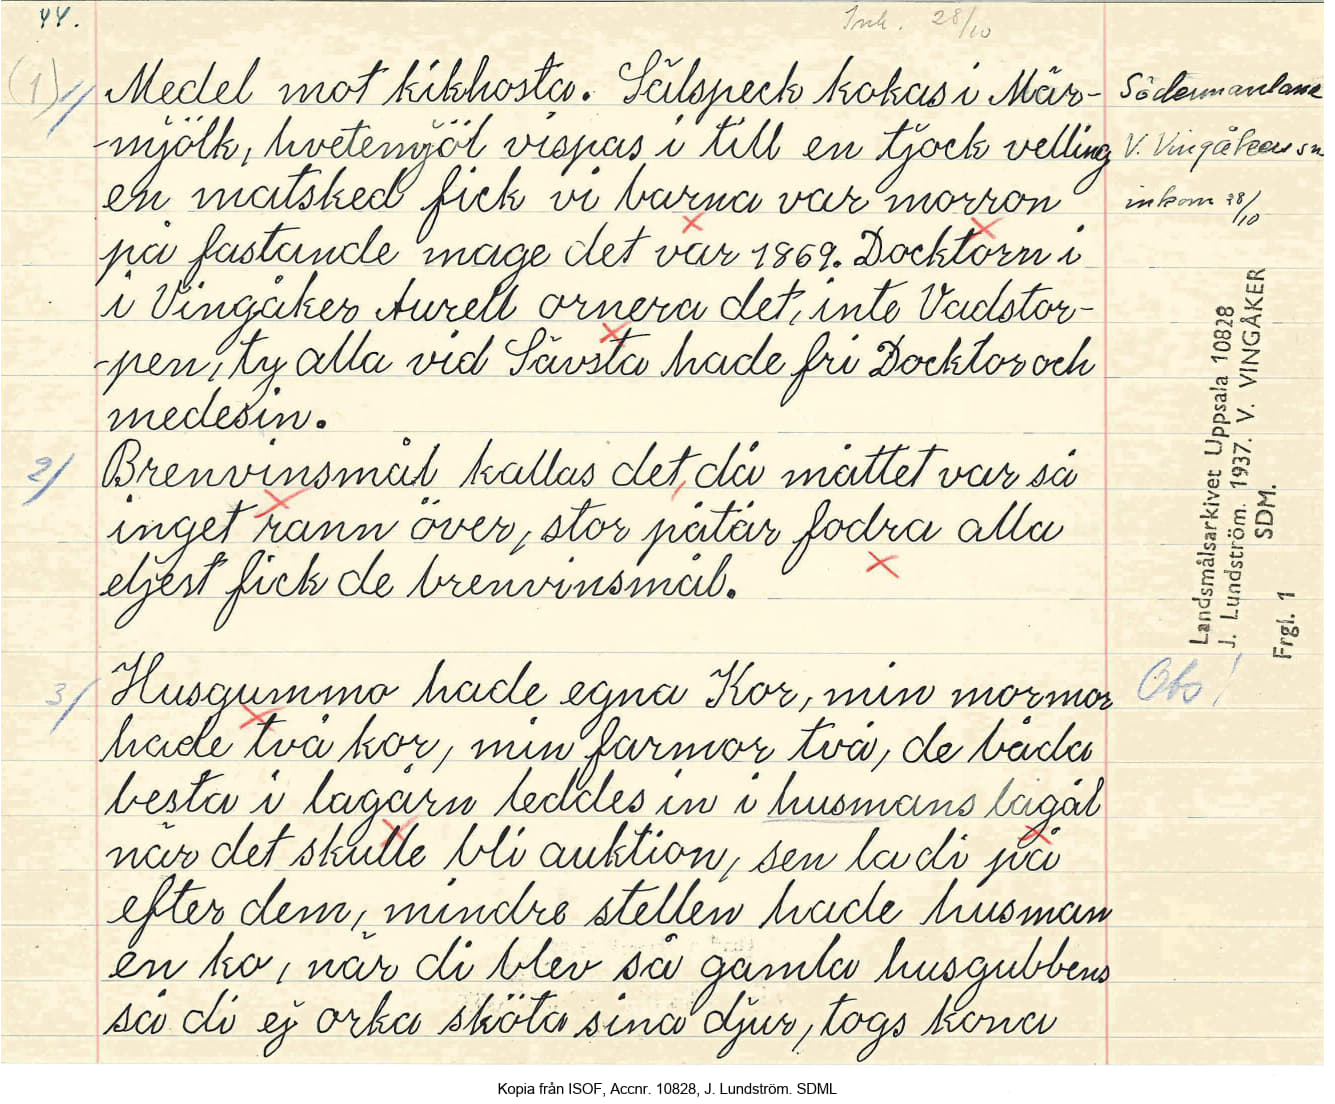 44.
Ink. 28/10
(1) 1/
Medel mot kikhosta. Sälspeck kokas i Mär-
-mjölk, hvetemjöl vispas i till en tjock velling
en matsked fick vi barna var morron
på fastande mage det var 1869. Docktorn i
i Vingåker Aurell ornera det, inte Vadstor-
-pen, ty alla vid Sävsta hade fri Docktor och
medesin.
2/
Brenvinsmål kallas det, då måttet var så
inget rann över, stor påtår fodra alla
eljest fick de brenvinsmål.
3/
Husgummo hade egna Kor, min mormor
hade två kor, min farmor två, de båda
besta i lagårn leddes in i husmans lagål
när det skulle bli auktion, sen la di på
efter dem, mindre stellen hade husman
en ko, när di blev så gamla husgubbens
så di ej orka sköta sina djur, togs kona
Södermanland
V. Vingåkers sn
inkom 28/10
Landsmålsarkivet Uppsala 10828
J. Lundström. 1937. V. VINGÅKER
SDM.
Frgl. 1
Obs!
Kopia från ISOF, Accnr. 10828, J. Lundström. SDML